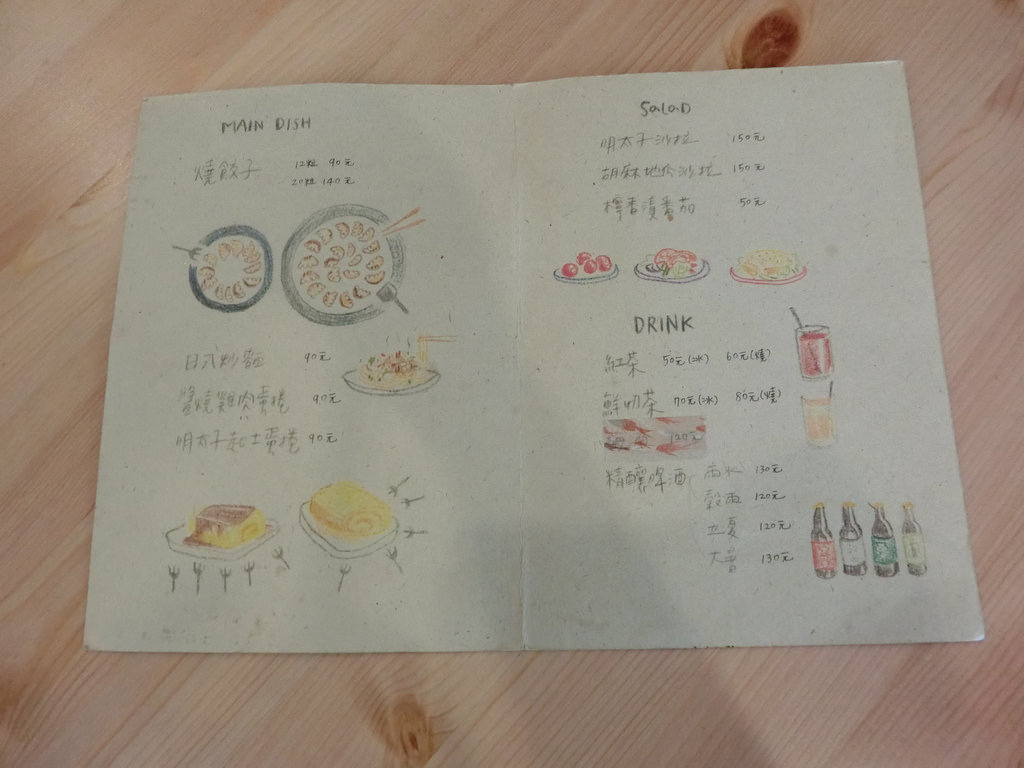 MAIN DISH
燒餃子 12粒 90元
20粒 140元
日式炒麵 90元
醬燒雞肉蛋捲 90元
明太子起士蛋捲 90元
SALAD
明太子沙拉 150元
胡麻地瓜沙拉 150元
檸香漬番茄 50元
DRINK
紅茶 50元(冰) 60元(燒)
鮮奶茶 70元(冰) 80元(燒)
120元
精釀啤酒 雨水 130元
穀雨 120元
立夏 120元
大暑 130元